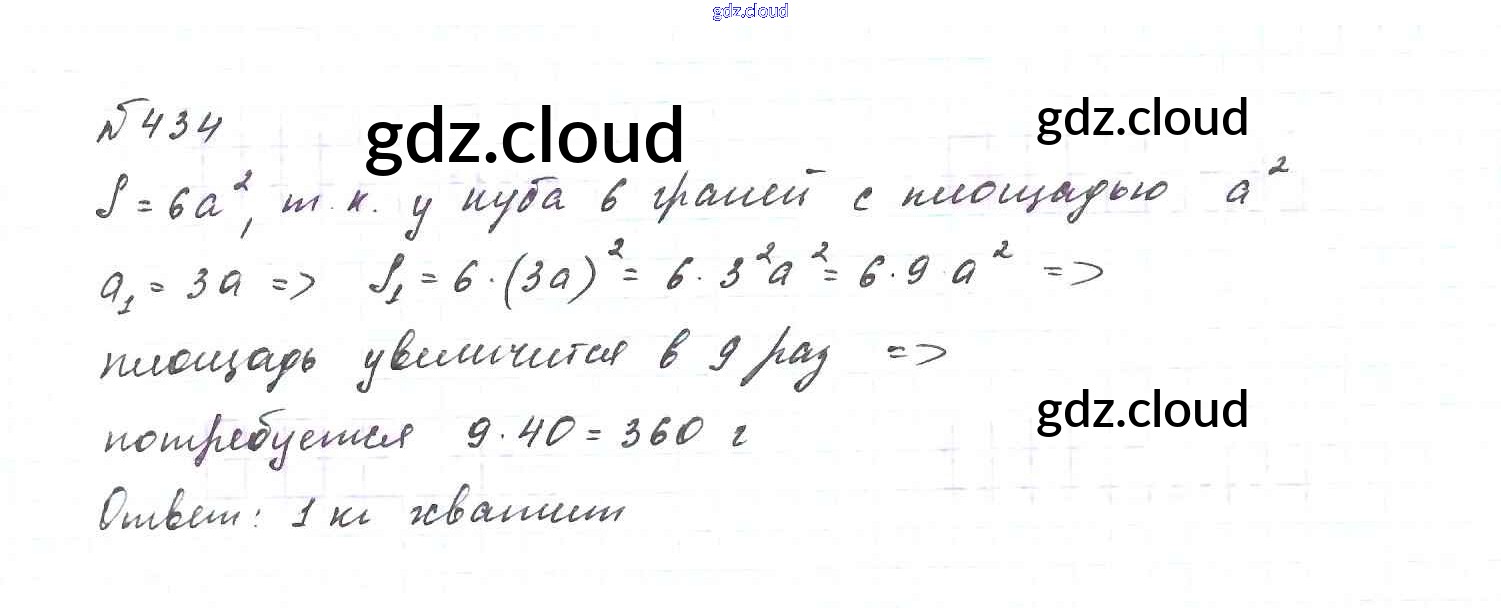 gdz.cloud
№434
gdz.cloud
gdz.cloud
S = 6a², т.к. у куба 6 граней с площадью a²
a₁ = 3a => S₁ = 6·(3a)² = 6·3²a² = 6·9·a² =>
площадь увеличится в 9 раз =>
gdz.cloud
потребуется 9·40 = 360 г
Ответ: 1 кг хватит